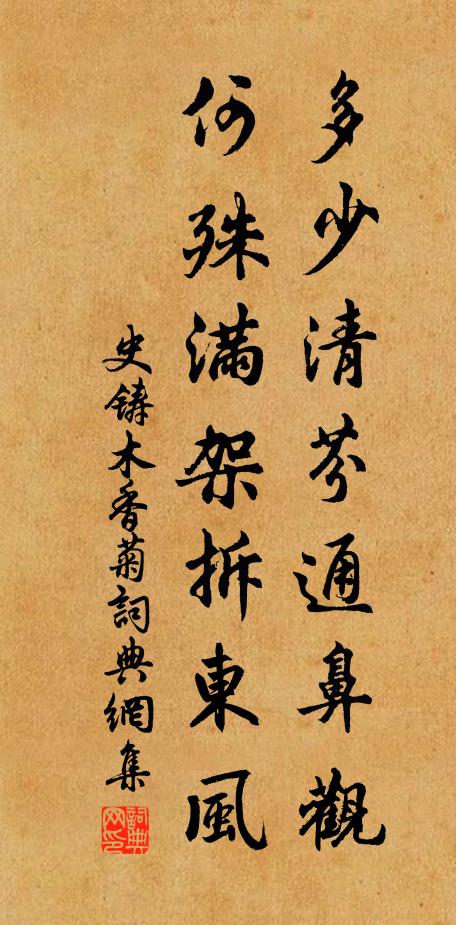 多少清芬通鼻觀
何殊滿架拆東風
史鑄木香菊詞典網集
詞典网印